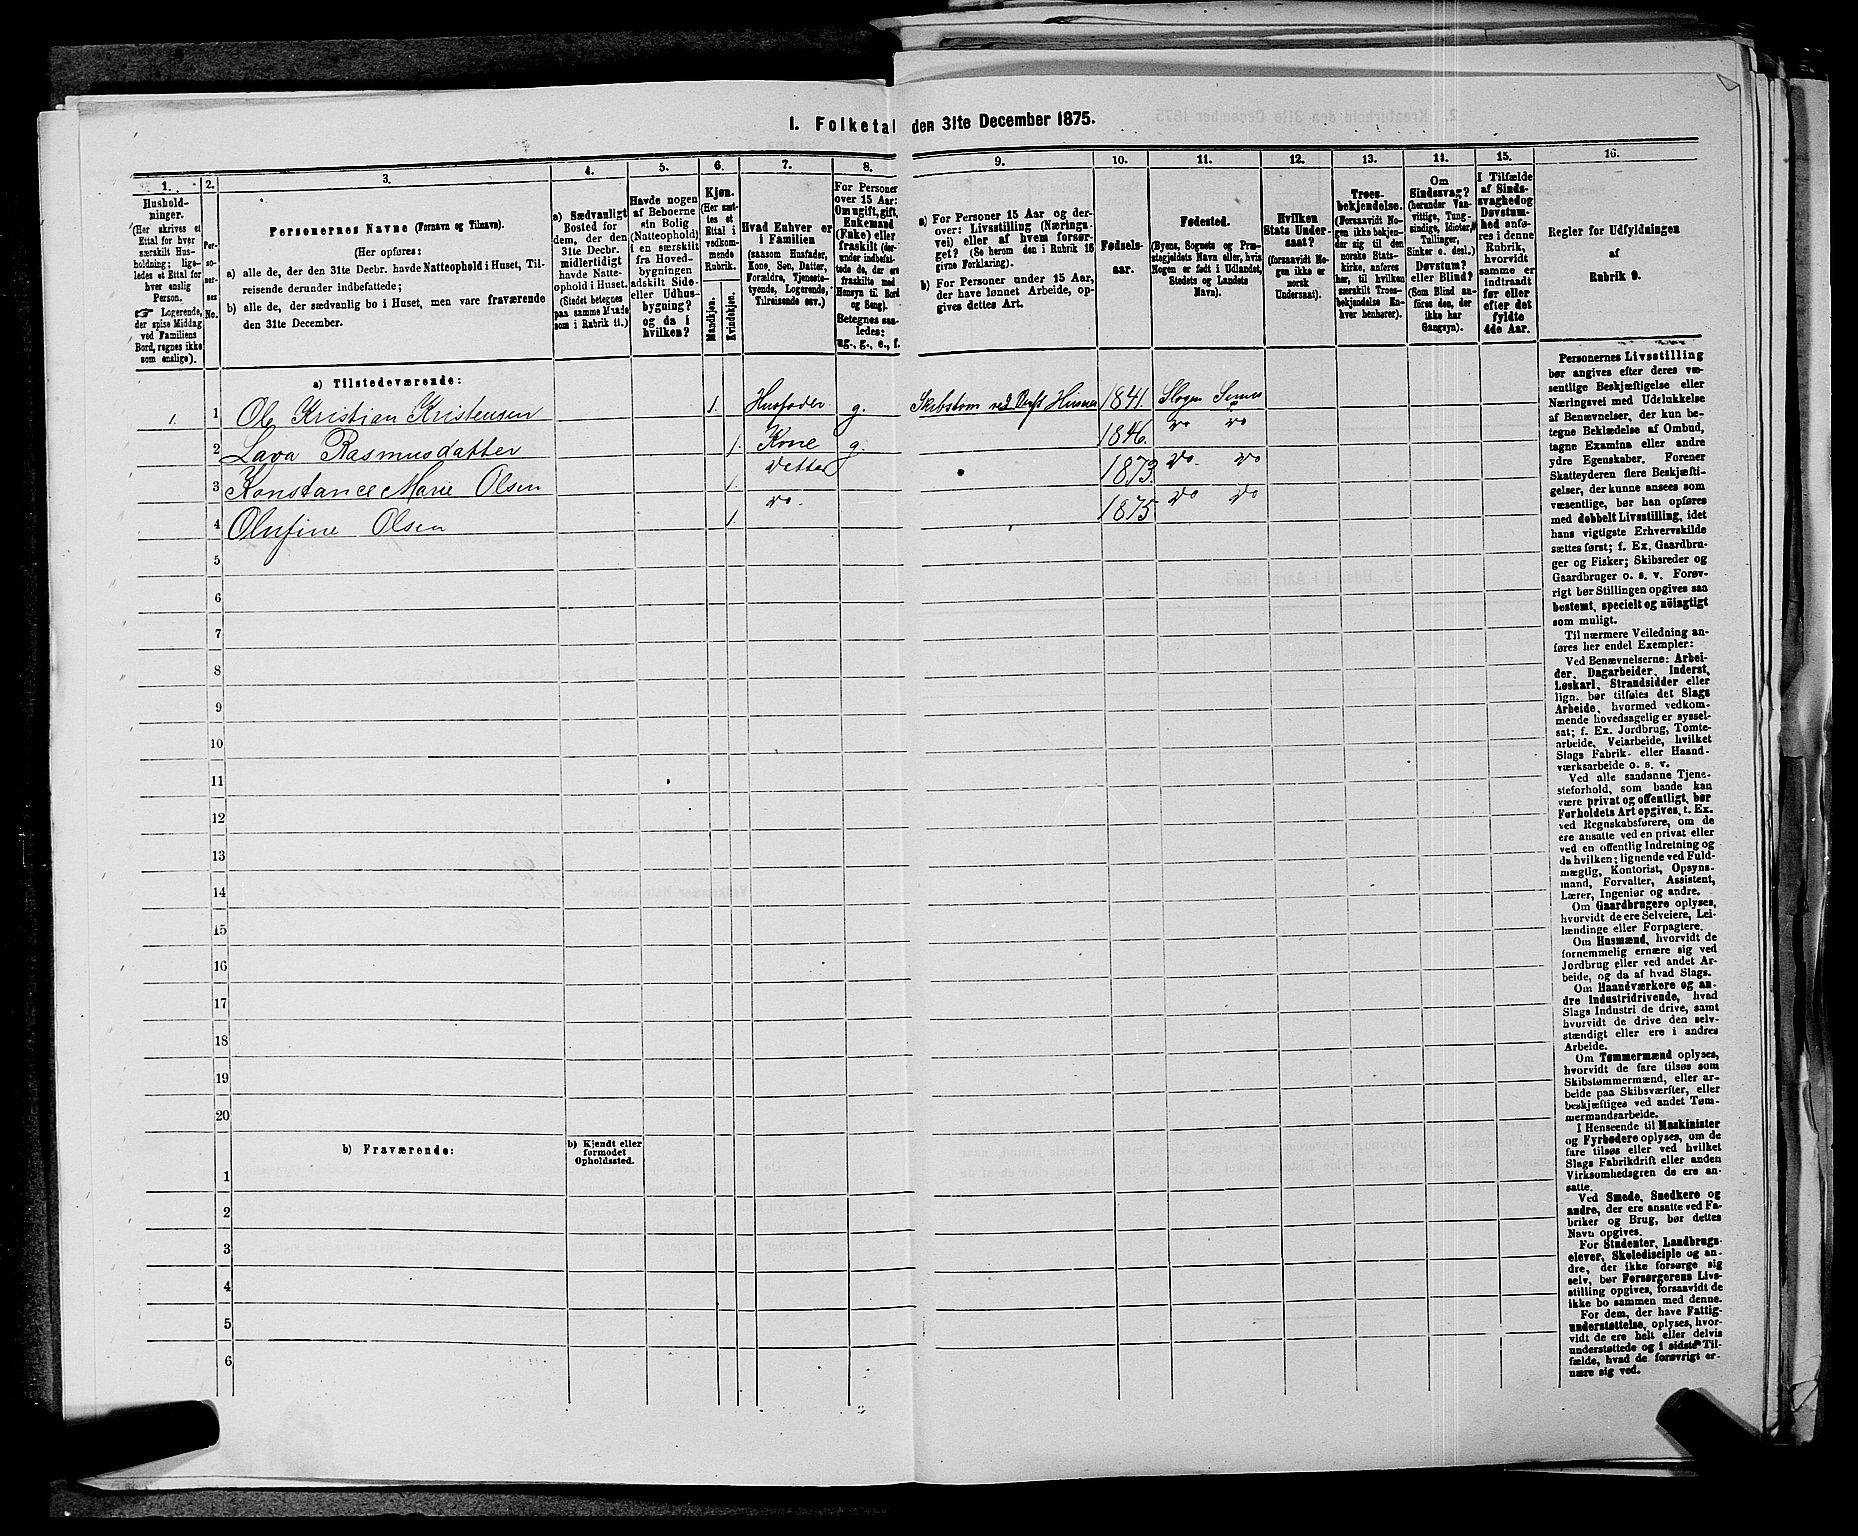 I. Folketal den 31te December 1875.
1.
Husholdninger.
(Her skrives et
Ettal for hver
særskilt Husholdning;
ligeledes et Ettal for
hver enslig
Person.
☞ Logerende,
der spise Middag
ved Familiens
Bord, regnes ikke
som enslige).
2.
Personernes
No.
3.
Personernes Navne (Fornavn og Tilnavn).
(Her opføres:
a) alle de, der den 31te Decbr. havde Natteophold i Huset, Tilreisende derunder indbefattede;
b) alle de, der sædvanlig bo i Huset, men vare fraværende
den 31te December.
4.
a) Sædvanligt
Bosted for
dem, der den
31te Decbr.
midlertidigt
havde Natteophold i Huset.
(Stedet betegnes
paa samme Maade
som i Rubrik 11.)
5.
Havde nogen
af Beboerne
sin Bolig
(Natteophold)
i en særskilt
fra Hovedbygningen
adskilt Side-
eller Udhusbygning?
og da i
hvilken?
6.
Kjøn.
(Her sættes et
Ettal i
vedkommende
Rubrik.
Mandkjøn.
Kvindekjøn.
7.
Hvad Enhver er
i Familien
(saasom Husfader,
Kone, Søn, Datter,
Forældre, Tjenestetyende, Logerende,
Tilreisende osv.)
8.
For Personer
over 15 Aar:
Om ugift, gift,
Enkemand
(Enke) eller
fraskilt (derunder indbefattede de, der ere
fraskilte med
Hensyn til Bord
og Seng).
Betegnes saaledes:
ug., g., e., f.
9.
a) For Personer 15 Aar og derover: Livsstilling (Næringsvei) eller af hvem forsørget? (Se herom den i Rubrik 16
givne Forklaring).
b) For Personer under 15 Aar,
der have lønnet Arbeide, opgives dettes Art.
10.
Fødselsaar.
11.
Fødested.
(Byens, Sognets og Præstegjeldets Navn eller, hvis
Nogen er født i Udlandet,
Stedets og Landets
Navn).
12.
Hvilken
Stats Undersaat?
(forsaavidt Nogen ikke er
norsk
Undersaat).
13.
Troesbekjendelse.
(Forsaavidt Nogen ikke bekjender sig til den
norske Statskirke, anføres
her, til hvilken
særskilt Troesbekjendelse Enhver henhører).
14.
Om
Sindssvag?
(herunder Vanvittige, Tungsindige, Idioter,
Tullinger,
Sinker o. desl.).
Døvstum?
eller Blind?
(Som Blind anføres den, der
ikke har
Gangsyn).
15.
I Tilfælde
af Sindssvaghed og
Døvstumhed anføres i denne
Rubrik,
hvorvidt
samme er
indtraadt
før eller
efter det
fyldte
4de Aar.
16.
Regler for Udfyldningen
af
Rubrik 9.
a) Tilstedeværende:
1. 1 Ole Kristian Kristensen 1. Husfader g. Skibstøm ved Verft Husmd 1841. Slagen Semes
2 Lava Rasmusdatter 1. Kone g. 1846. Do Do
3 Konstance Marie Olsen 1. Detter 1873. Do. Do
4 Olufine Olsen 1. Do. 1875 Do Do
5
6
7
8
9
10
11
12
13
14
15
16
17
18
19
20
b) Fraværende:
b) Kjendt eller
formodet
Opholdssted.
1
2
3
4
5
6
Personernes Livsstilling
bør angives efter deres væsentlige Beskjæftigelse eller
Næringsvei med Udelukkelse
af Benævnelser, der kun betegne Beklædelse af Ombud,
tagne Examina eller andre
ydre Egenskaber. Forener
Skatteyderen flere Beskjæftigelser, der kunne ansees som
væsentlige, bør han opføres
med dobbelt Livsstilling, idet
hans vigtigste Erhvervskilde
sættes først; f. Ex. Gaardbruger og Fisker; Skibsreder og
Gaardbruger o. s. v. Forøvrigt bør Stillingen opgives saa
bestemt, specielt og nöiagtigt
som muligt.
Til nærmere Veiledning anføres her endel Exempler:
Ved Benævnelserne: Arbeider, Dagarbeider, Inderst,
Løskarl, Strandsidder eller
lign. bør tilføies det Slags
Arbeide, hvormed vedkommende hovedsagelig er sysselsat; f. Ex. Jordbrug, Tomtearbeide, Veiarbeide, hvilket
Slags Fabrik- eller Haandværksarbeide o. s. v.
Ved alle saadanne Tjenesteforhold, som baade kan
være privat og offentligt, bør
Forholdets Art opgives, t. Ex.
ved Regnskabsførere, om de
ere ansatte ved en privat eller
ved en offentlig Indretning og
da hvilken; lignende ved Fuldmægtig, Kontorist, Opsynsmand, Forvalter, Assistent,
Lærer, Ingeniør og andre.
Om Gaardbrugere oplyses,
hvorvidt de ere Selveiere, Leilændinge eller Forpagtere.
Om Husmænd, hvorvidt de
fornemmelig ernære sig ved
Jordbrug eller ved andet Arbeide, og da af hvad Slags.
Om Haandværkere og andre Industridrivende, hvad
Slags Industri de drive, samt
hvorvidt de drive den selvstændigt eller ere i andres
Arbeide.
Om Tømmermænd oplyses,
hvorvidt de fare tilsøs som
Skibstømmermænd, eller arbeide paa Skibsværfter, eller
beskjæftiges ved andet Tømmermandsarbeide.
I Henseende til Maskinister
og Fyrbødere oplyses, om de
fare tilsøs eller ved hvilket
Slags Fabrikdrift eller anden
Virksomhedsgren de ere ansatte.
Ved Smede, Snedkere og
andre, der ere ansatte ved Fabriker og Brug, bør dettes
Navn opgives.
For Studenter, Landbrugselever, Skoledisciple og andre, der ikke forsørge sig
selv, bør Forsørgerens Livsstilling opgives, forsaavidt de
ikke bo sammen med denne.
For dem, der have Fattigunderstøttelse, oplyses, hvorvidt de ere helt eller delvis
understøttede og i sidste Tilfælde, hvad de forøvrigt ernære sig ved.